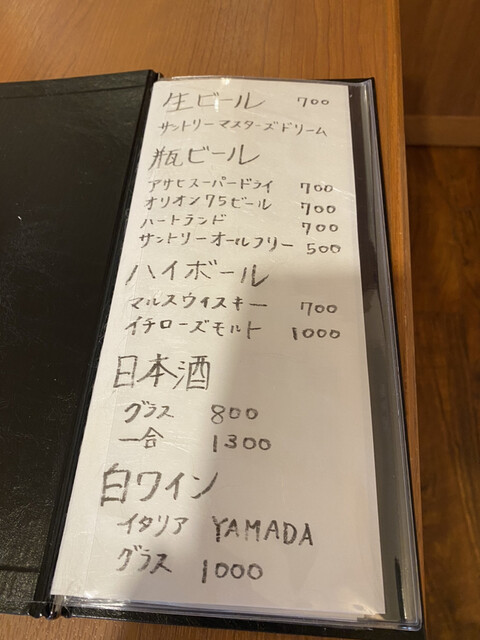 生ビール 700
サントリーマスターズドリーム
瓶ビール
アサヒスーパードライ 700
オリオン75ビール 700
ハートランド 700
サントリーオールフリー 500
ハイボール
マルスウイスキー 700
イチローズモルト 1000
日本酒
グラス 800
一合 1300
白ワイン
イタリア YAMADA
グラス 1000